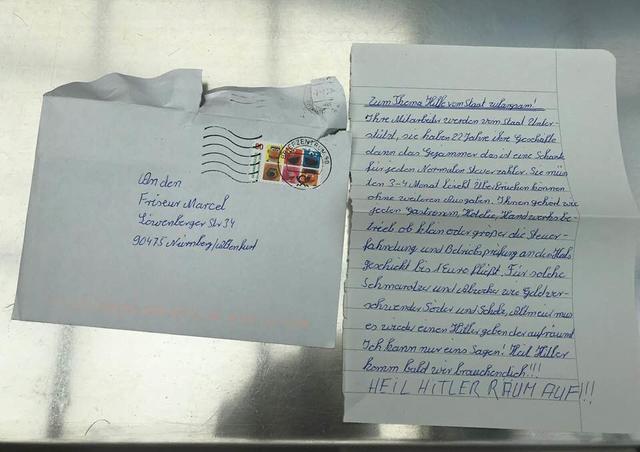 BRIEFZENTRUM 90
90
An den
Friseur Marcel
Löwenberger Str 34
90475 Nürnberg/Altenfurt
Zum Thema Hilfe vom Staat zulangsam!
Ihre Mitarbeiter werden vom Staat Unter-
stützt, sie haben 22 Jahre ihre Geschäfte
dann das Gejammer das ist eine Schande
für jeden Normalen Steuerzahler. Sie müs
ten 3-4 Monat leicht Überbrücken können
ohne weiteren Ausgaben. Ihnen gehört wie
jeden Gastronom, Hotelie, Handwerksbe-
trieb ob klein oder größer die Steuer-
fahndung und Betriebsprüfung an den Hals
geschickt bis 1 Euro fließt. Für solche
Schmarotzer und Abzocker wie Geldver-
schwender Söder und Scholz, Altmeier mus
es wieder einen Hitler geben der aufräumt
Ich kann nur eins Sagen! Heil Hitler
komm bald wir brauchen dich!!!
HEIL HITLER RÄUM AUF!!!